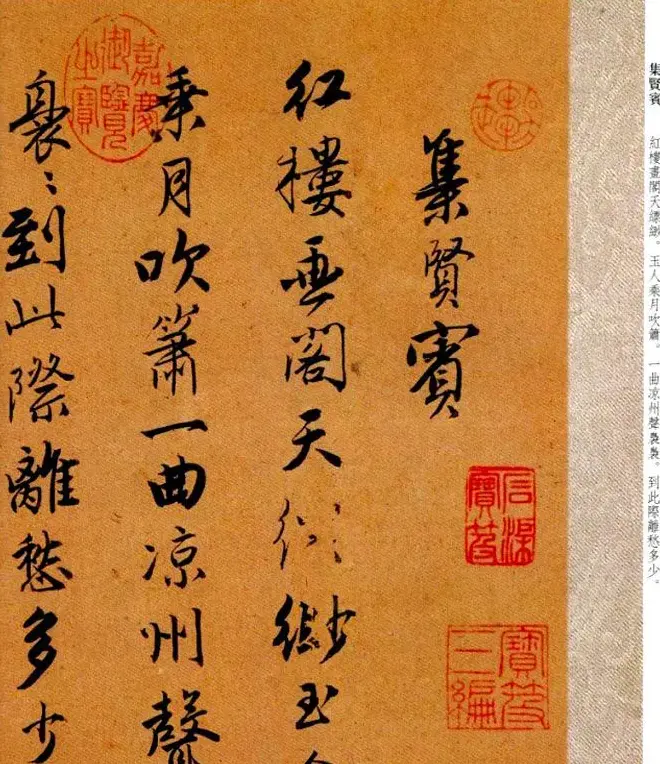 集賢賓 紅樓畫閣天縹緲。玉人乘月吹簫。一曲凉州聲裊裊。到此際離愁多少。
集賢賓
紅樓畫閣天縹緲玉
乘月吹簫一曲凉州聲
裊〻到此際離愁多少
石渠寶笈
寶笈三編
嘉慶御覽之寶